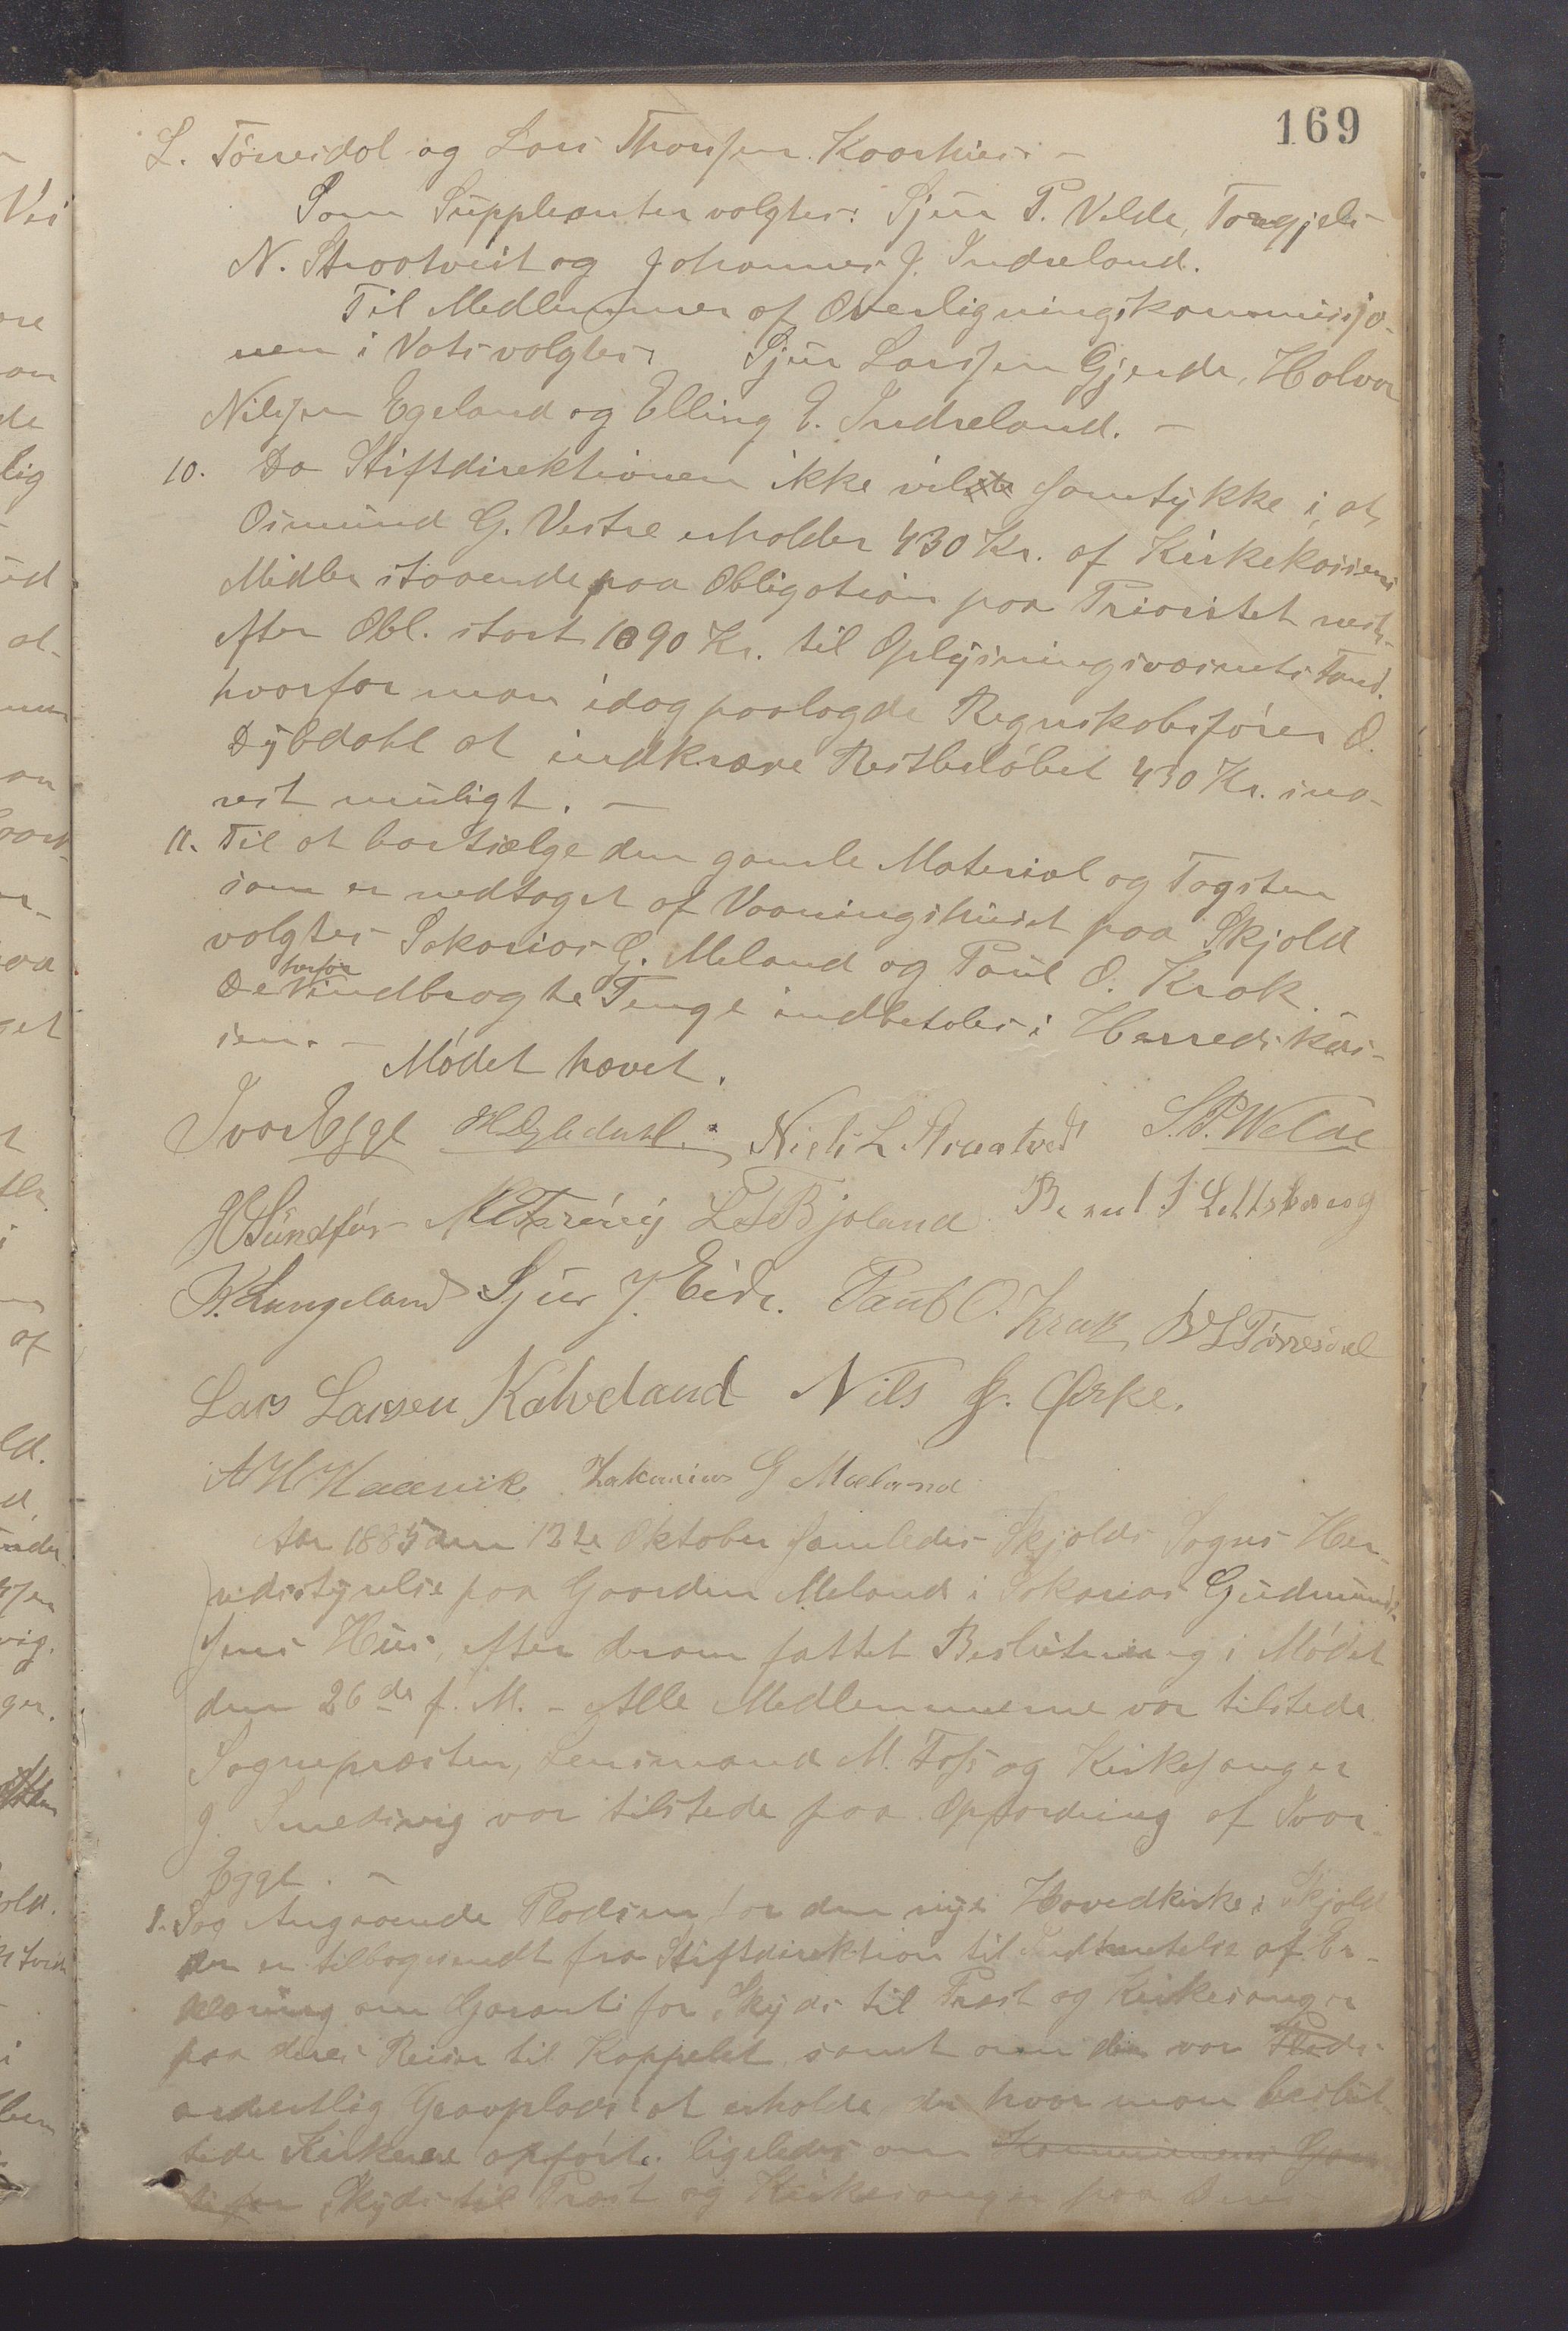 169
L. Tòrresdal og Lars Thorsen Kaarhus. –
Som Suppleanter valgtes: Sjur P. Velde, Torgjels
N. Straatveit og Johannes J. Indreland.
Til Medlemmer af Overligningskommissjo-
nen i Vats valgtes: Sjur Larssen Gjerde, Halvor
Nilssen Egeland og Elling E. Indreland. –
10. Da Stiftdirektionen ikke vil samtykke i, at
Osmund G. Vestre erholder 430 Kr. af Kirkekassens
Midler staaende paa Obligation paa Prioritet næst
efter Obl. stort 1090 Kr. til Oplysningsvæsnets Fond.
hvorfor man idag paalagde Regnskabsfører O.
Dybdahl at indkræve Restbelòbet 430 Kr. sna-
rest muligt. –
11. Til at bortsælge den gamle Material og Tagsten
som er nedtaget af Vaaningshuset paa Skjold
valgtes Sakarias G. Meland og Paul O. Krak
De derfor indbragte Penge indbetales i Herredskas-
sen. – Mòdet hævet.
Ivar Egge Niels L Straatveit S. P. Welde
H Sundfòr L T Bjoland Bernt S
K. Langeland Sjur J. Eide. Paul O. Krak B L Tòrresdal
Lars Larsen Kalveland Nils G. Ørke.
A H Haavik Zakarias G Mæland
Aar 1885 den 12te Oktober samledes Skjolds Sogns Her-
redsstyrelse paa Gaarden Meland i Sakarias Gudmund-
sens Hus, efter derom fattet Beslutning i Mòdet
den 26de f. M. – Alle Medlemmerne var tilstede.
Sognepræsten, Lensmand M. Foss og Kirkesanger
J. Smedsvig var tilstede paa Opfordring af Ivar
Egge. –
1. Sag Angaaende Pladsen for den nye Hovedkirke i Skjold
der er tilbagesendt fra Stiftdirektion til Indhentelse af Er-
klæring om Garanti for Skyds til Præst og Kirkesanger
paa deres Reiser til Kappelet samt om der var Plads
ordentlig Gravplads at erholde der hvor man beslut-
tede Kirkene opfòrt. ligeledes om Kommunens Garan
ti for Skyds til Præst og Kirkesanger paa deres